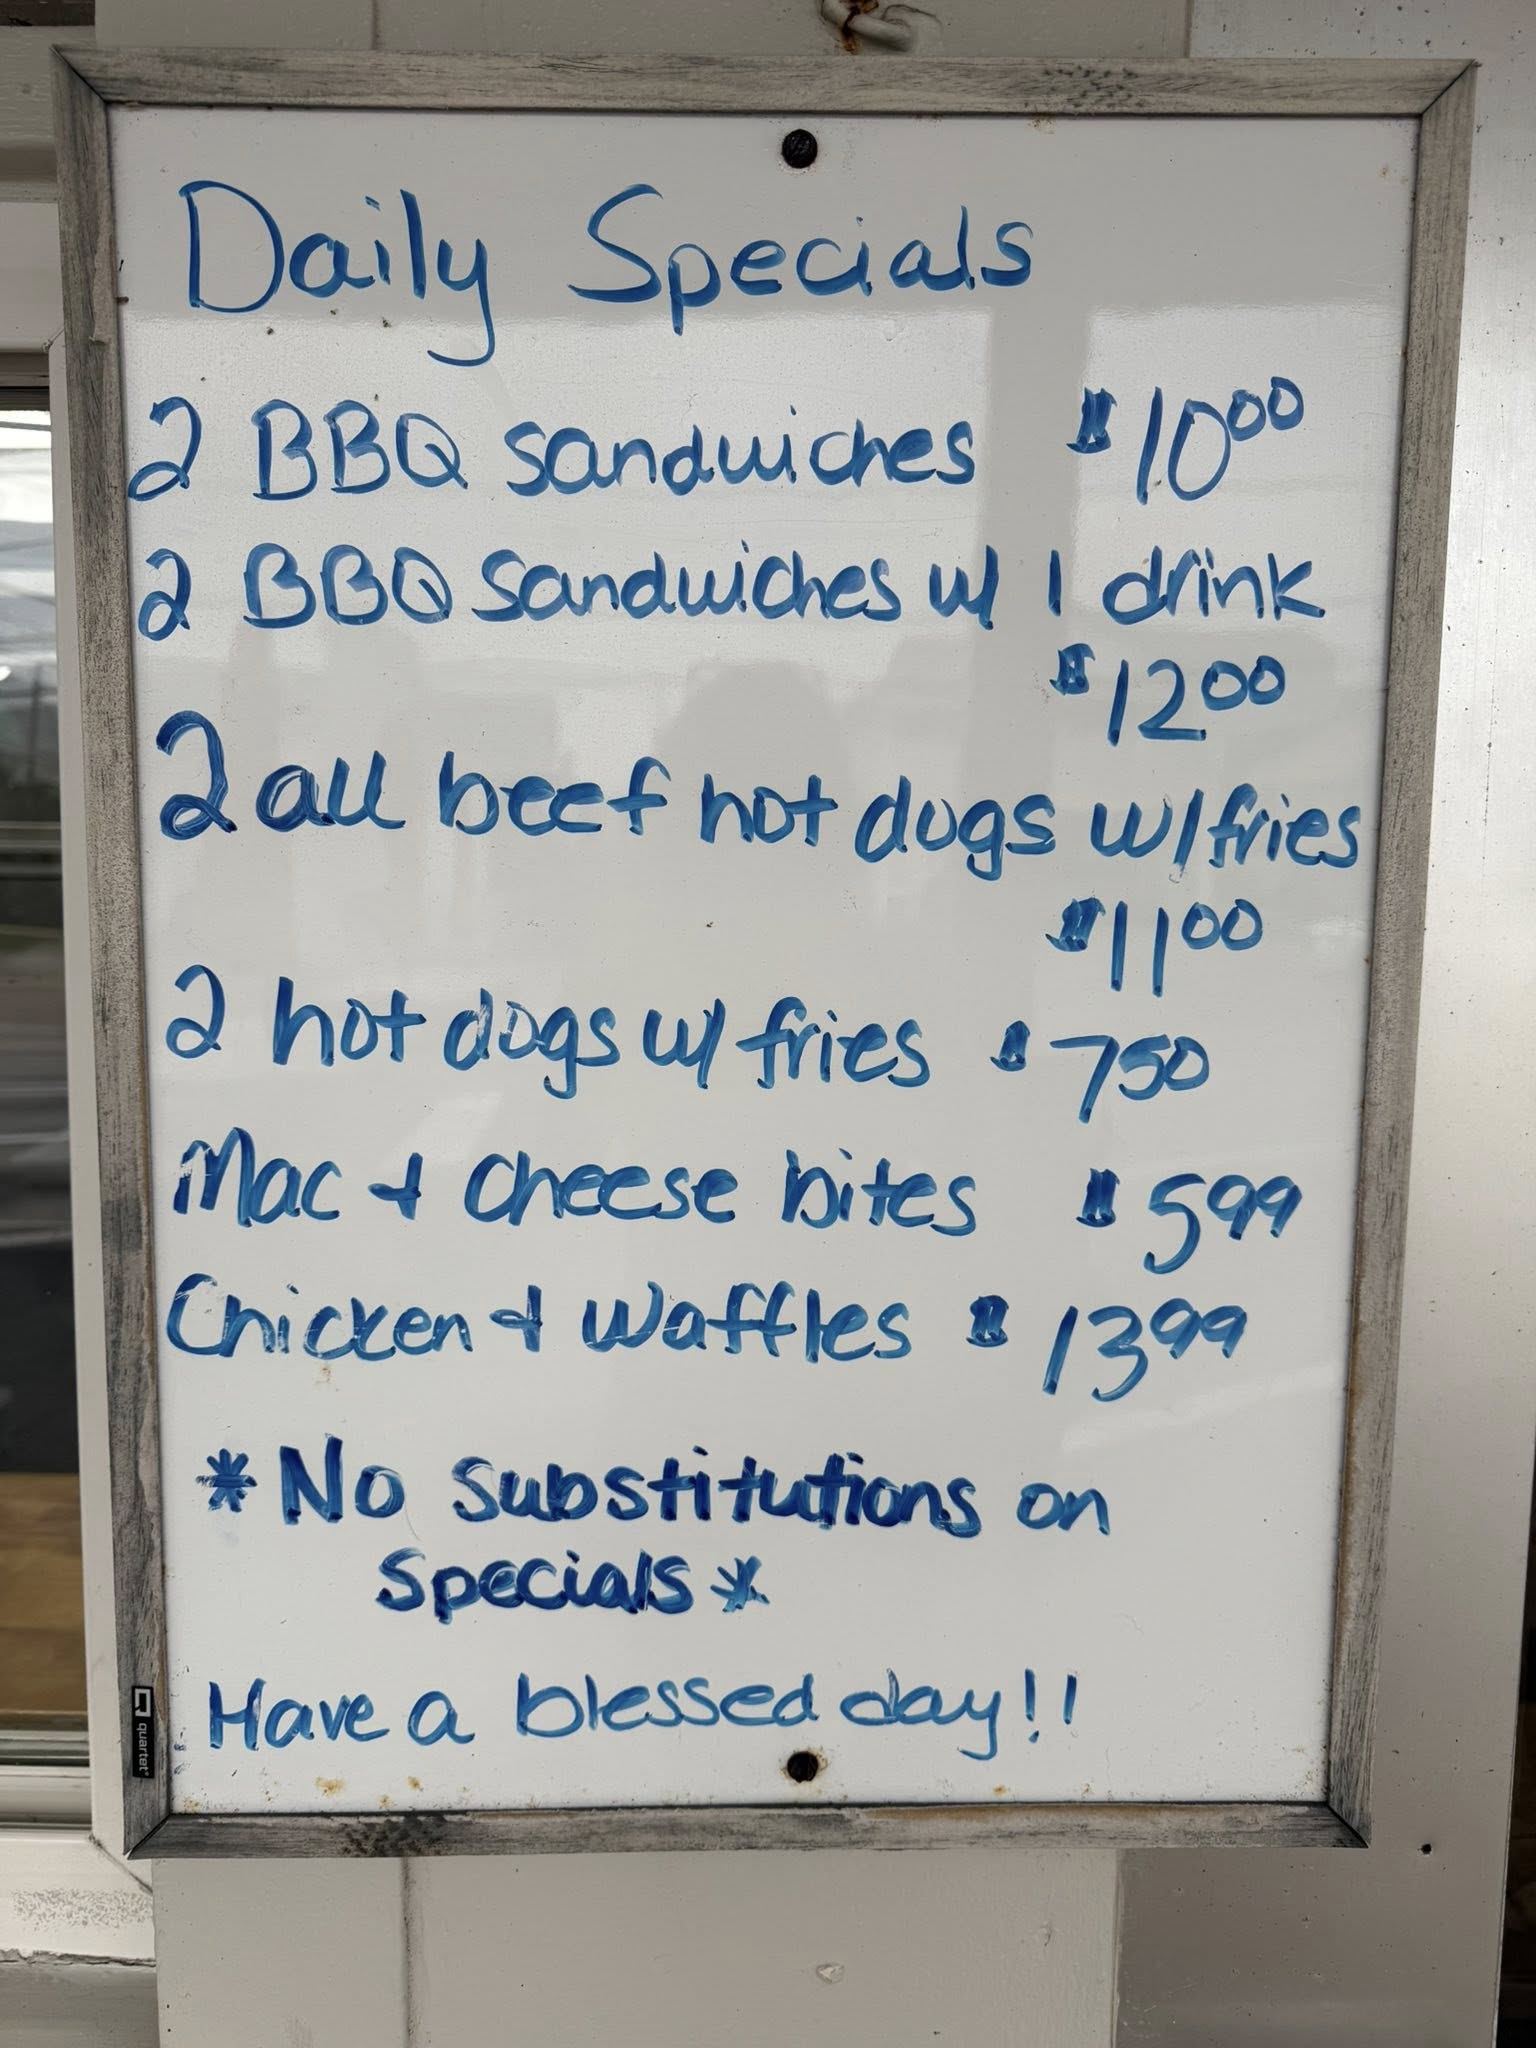 Daily Specials
2 BBQ sandwiches $10.00
2 BBQ sandwiches w/ 1 drink
$12.00
2 all beef hot dogs w/fries
$11.00
2 hot dogs w/ fries $7.50
Mac + cheese bites $5.99
Chicken + Waffles $13.99
*No substitutions on
specials*
Have a blessed day!!
quartet®